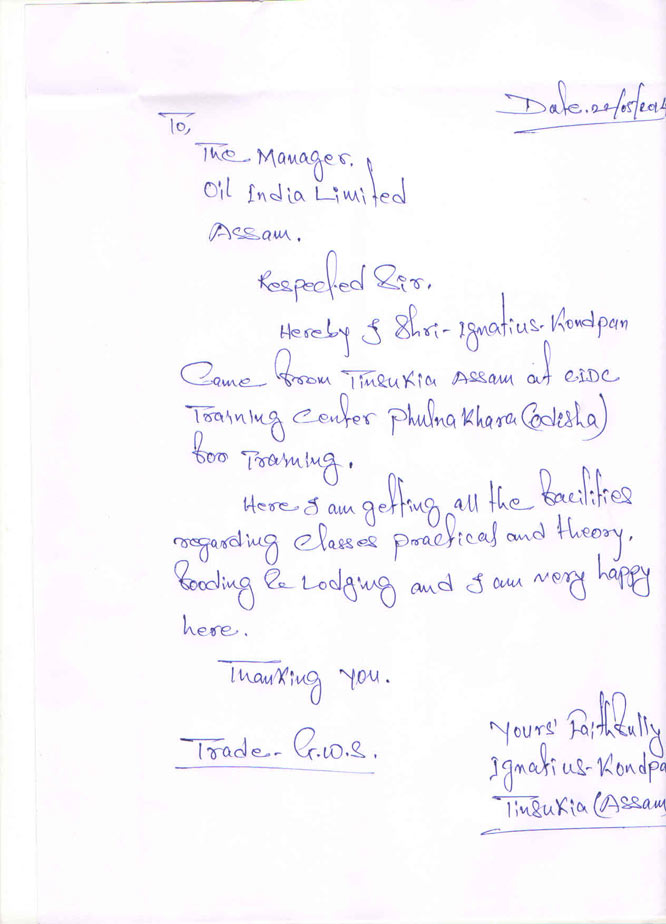 Date.22/05/2014
To,
The Manager.
Oil India Limited
Assam.
Respected Sir.
Hereby I Shri-Ignatius-Kondpan
Came from Tinsukia Assam at CIDC
Training Center Phulnakhara(Odisha)
for Training.
Here I am getting all the facilities
regarding Classes practical and theory.
fooding & Lodging and I am very happy
here.
Thanking you.
Trade- G.W.S.
Yours' Faithfully
Ignatius-Kondpa
Tinsukia (Assam